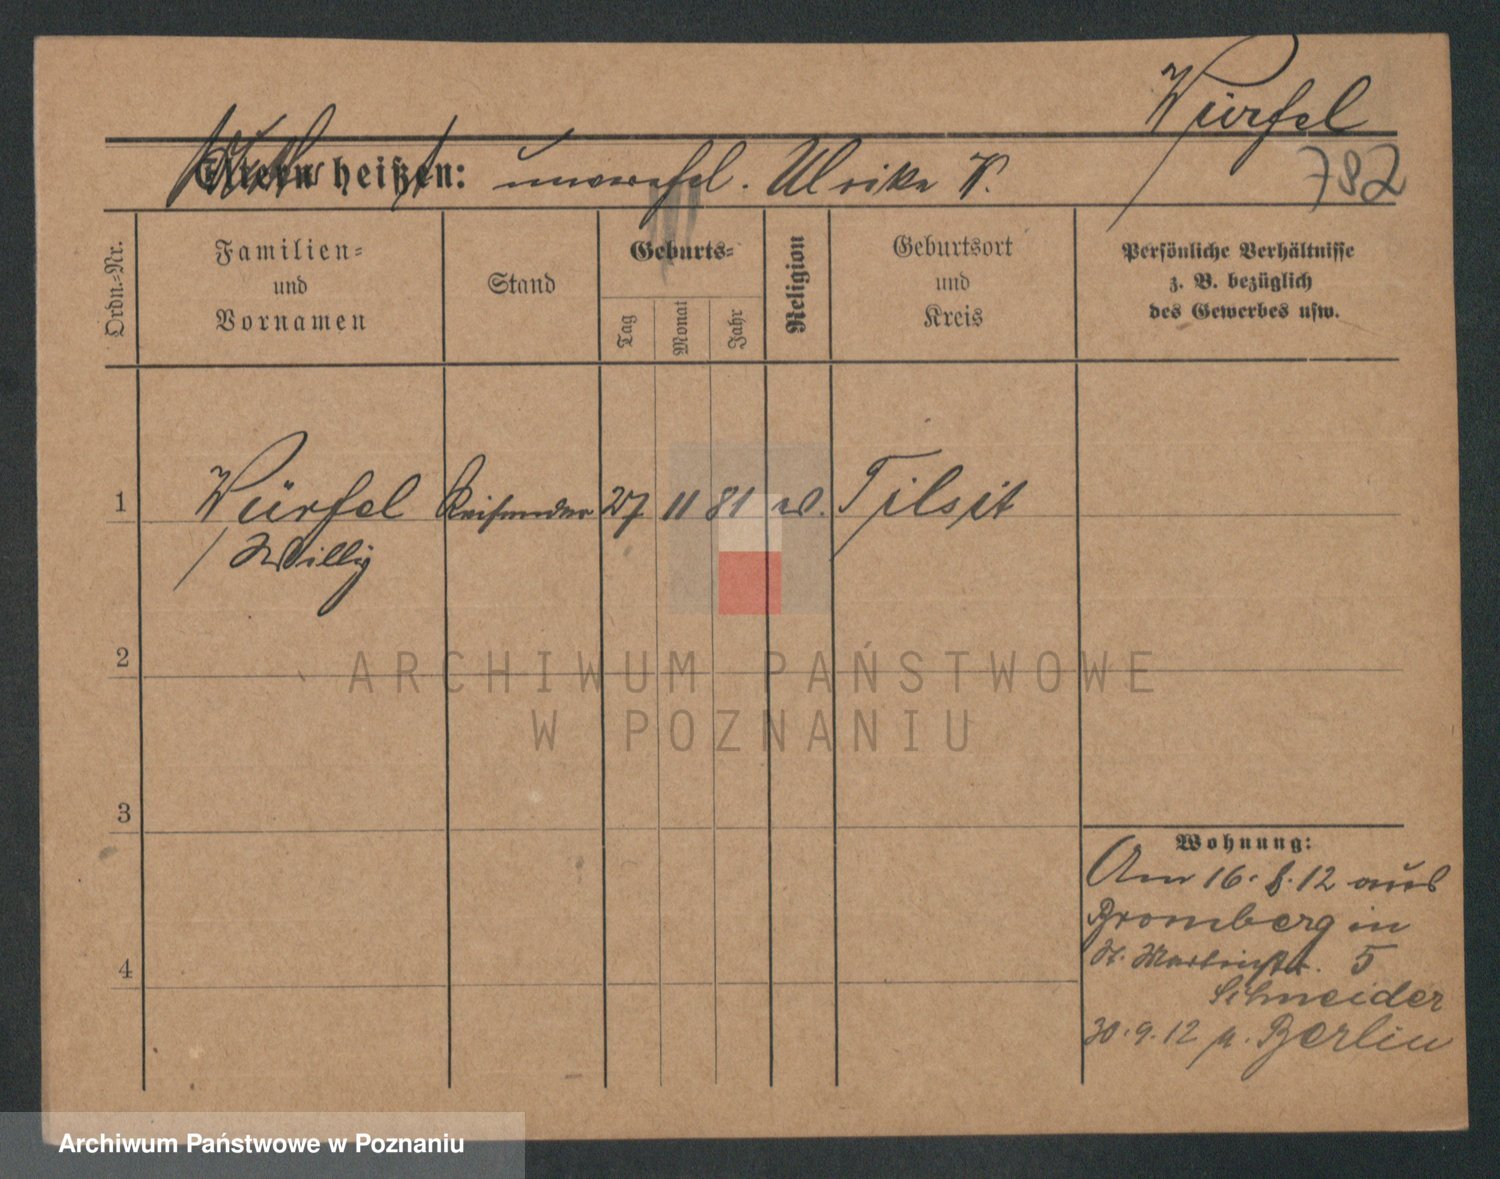 Würfel
Eltern heißen: unverehel. Ulrike W.
782
Ordn.-Nr.
Familien-
und
Vornamen
Stand
Geburts-
Tag
Monat
Jahr
Religion
Geburtsort
und
Kreis
Persönliche Verhältnisse
z. B. bezüglich
des Gewerbes usw.
1
Würfel Reisender 27 11 81 ev. Tilsit
Willy
2
ARCHIWUM PAŃSTWOWE
W POZNANIU
3
Wohnung:
Am 16. 8. 12 aus
Bromberg in
St. Martinstr. 5
4
Schneider
30. 9. 12 n. Berlin
Archiwum Państwowe w Poznaniu